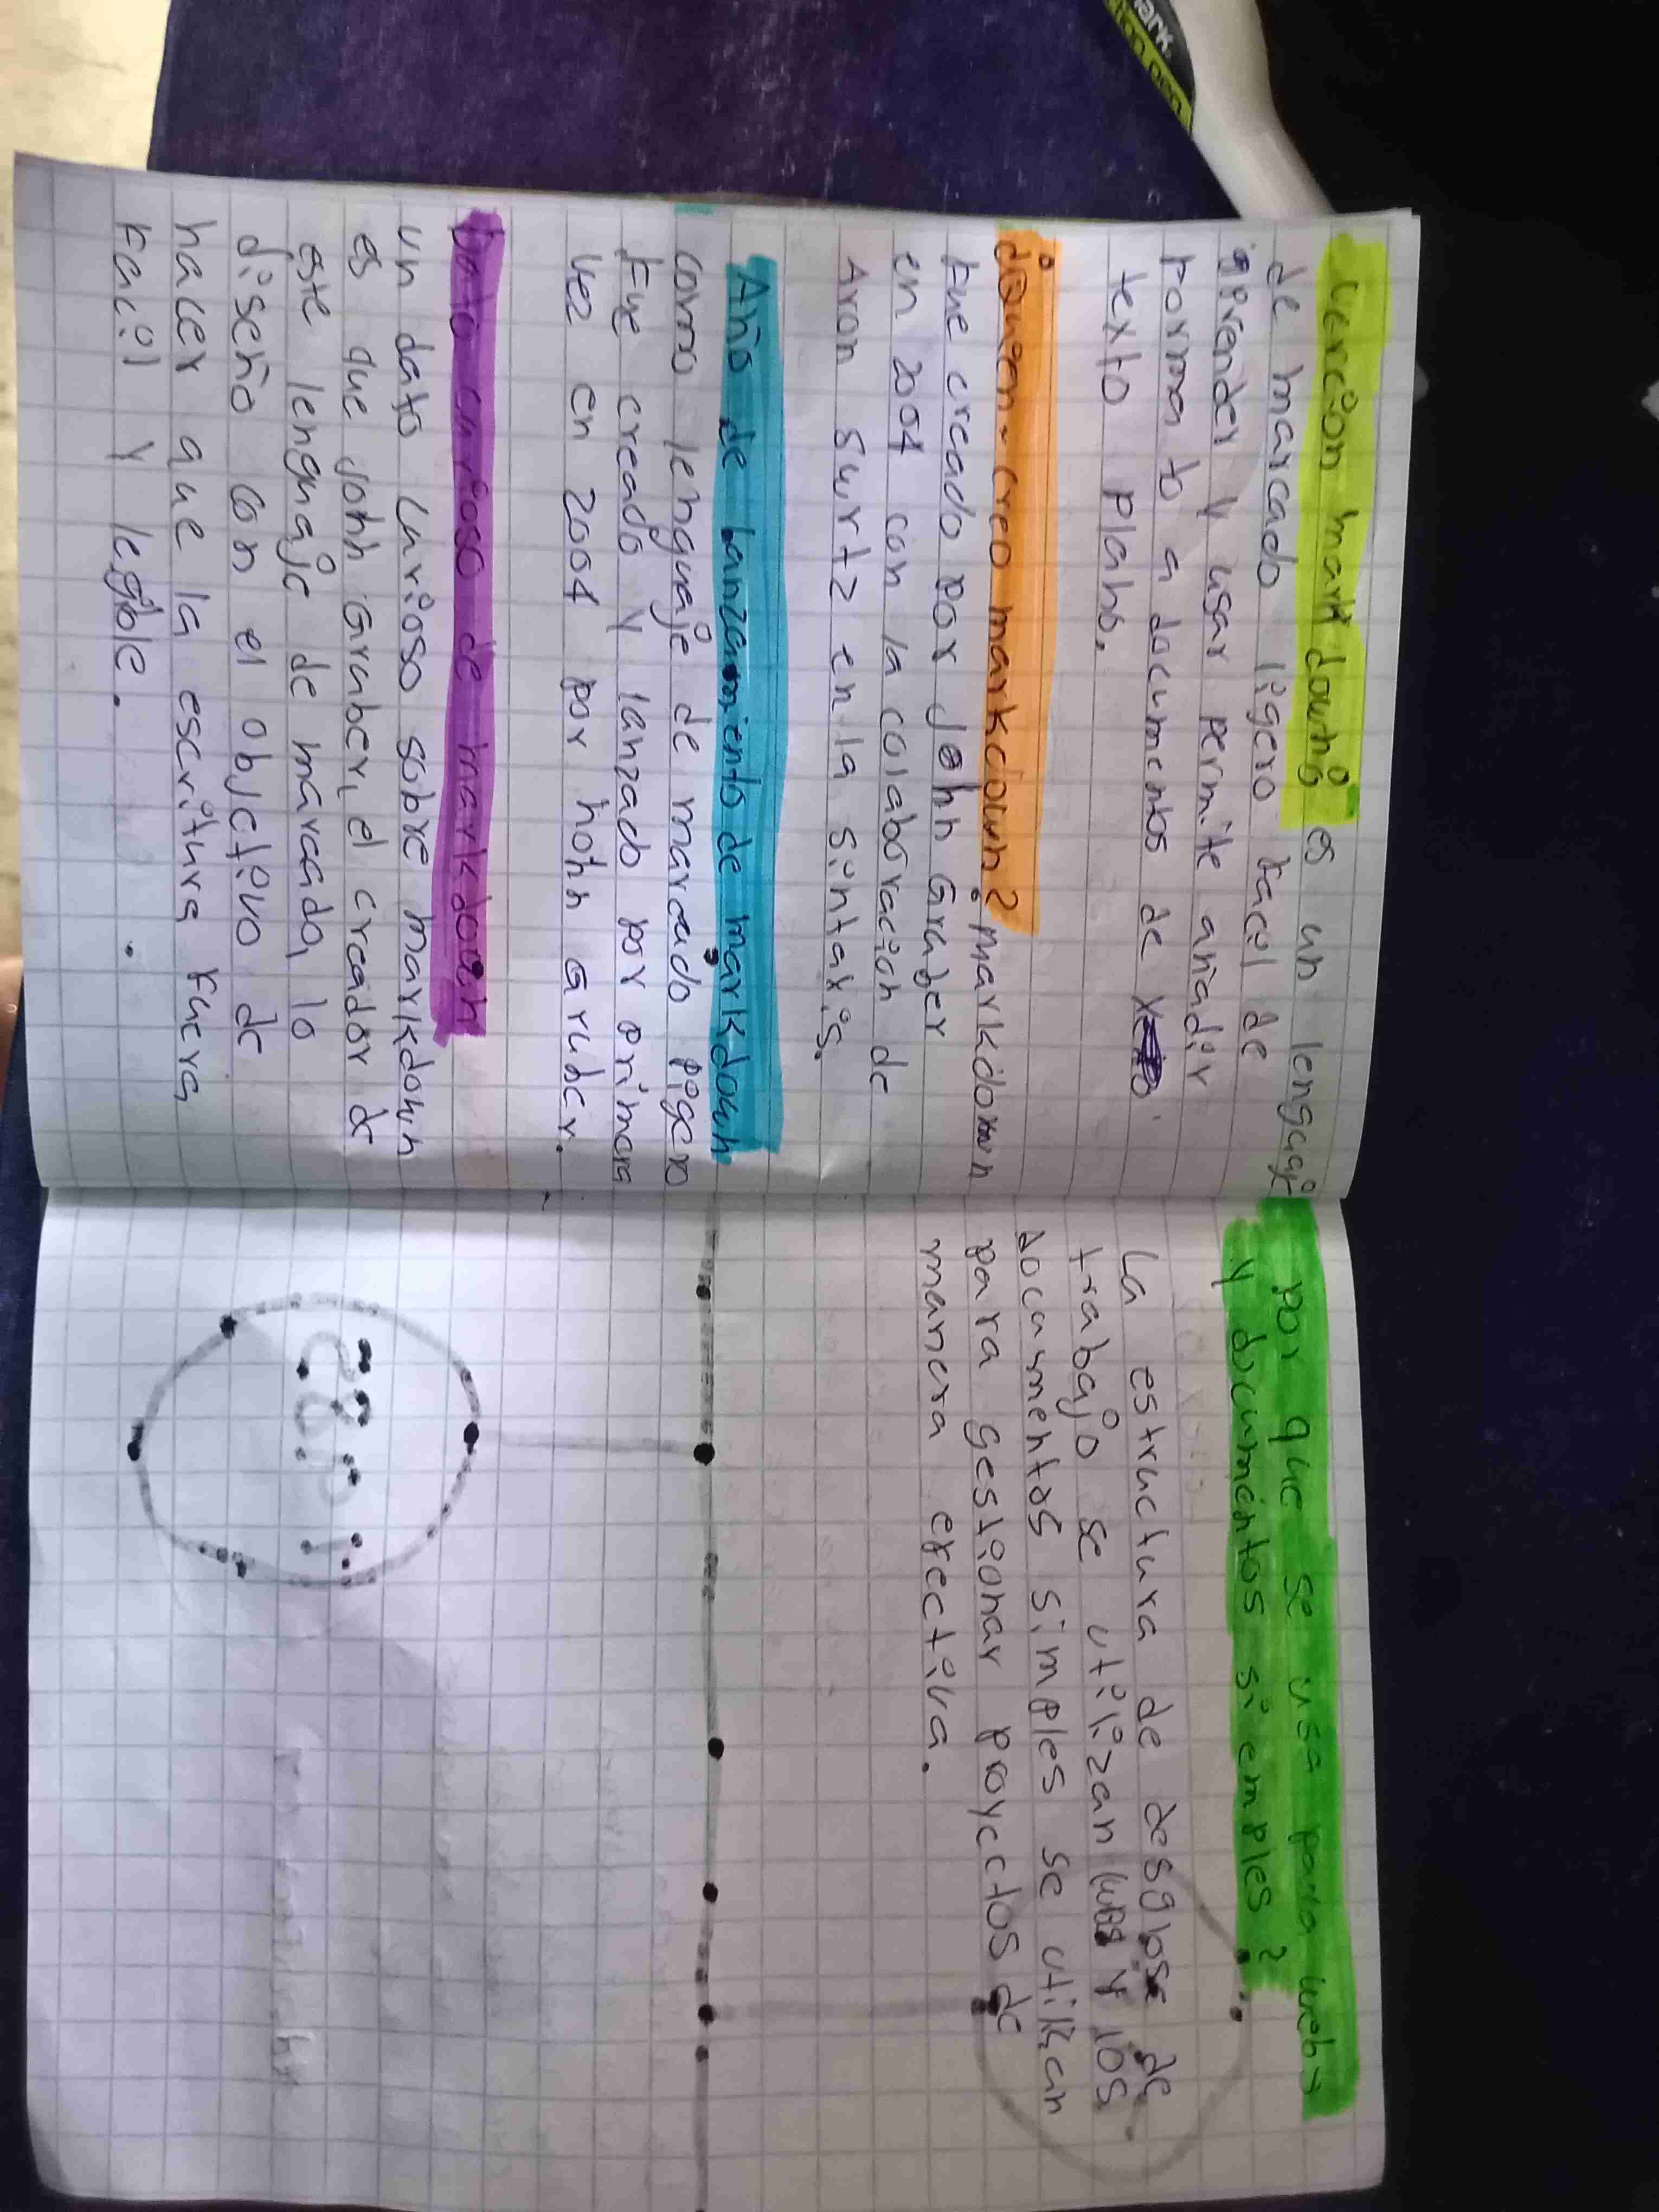 Verción markdown: es un lenguaje
de marcado ligero facil de
aprender y usar permite añadir
formato a documentos de
texto plano.
¿Quien creo markdown? markdown
Fue creado por John Gruber
en 2004 con la colaboración de
Aron Surtz en la sintaxis.
Año de lanzamiento de markdown
como lenguaje de marcado ligero
Fue creado y lanzado por primera
vez en 2004 por hohn Gruber.
Dato curioso de markdown
un dato curioso sobre markdown
es que John Gruber, el creador de
este lenguaje de marcado, lo
diseño con el objetivo de
hacer que la escritura fuera
Facil y legible.
Por que se usa para web y
y documentos siemples?
La estructura de desglose de
trabajo se utilizan y los
documentos simples se utilizan
para gestionar proyectos de
manera efectiva.